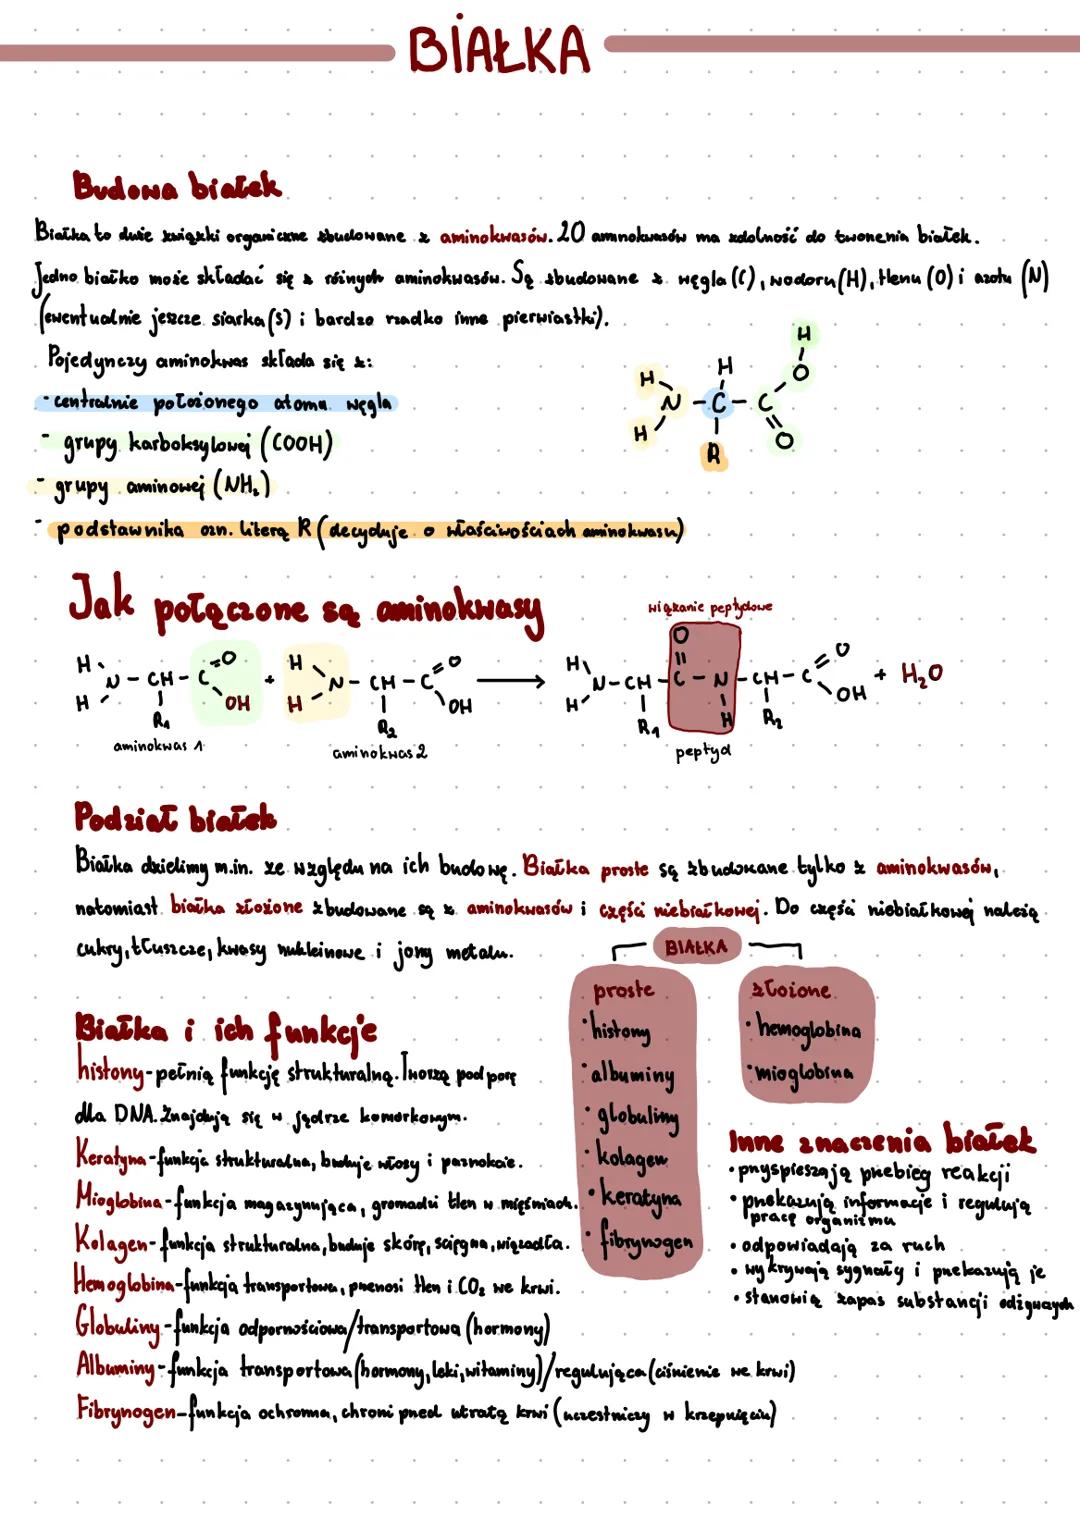 BIAŁKA
Budowa białek
Białka to duże związki organiczne zbudowane z aminokwasów. 20 aminokwasów ma zdolność do tworzenia białek.
Jedno białko może składać się z różnych aminokwasów. Są zbudowane z węgla (C), wodoru (H), tlenu (O) i azotu (N)
(ewentualnie jeszcze siarka (S) i bardzo rzadko inne pierwiastki).
Pojedynczy aminokwas składa się z:
- centralnie położonego atomu węgla
- grupy karboksylowej (COOH)
- grupy aminowej (NH₂)
- podstawnika ozn. literą R (decyduje o właściwościach aminokwasu)
H
H H O
N - C - C
H R O
Jak połączone są aminokwasy
wiązanie peptydowe
H O H O H O O
N - CH - C + N - CH - C → N - CH - C - N - CH - C + H₂O
H R₁ OH H R₂ OH H R₁ H R₂ OH
aminokwas 1 aminokwas 2 peptyd
Podział białek
Białka dzielimy m.in. ze względu na ich budowę. Białka proste są zbudowane tylko z aminokwasów,
natomiast białka złożone zbudowane są z aminokwasów i części niebiałkowej. Do części niebiałkowej należą
cukry, tłuszcze, kwasy nukleinowe i jony metalu.
BIAŁKA
proste
• histony
• albuminy
• globuliny
• kolagen
• keratyna
• fibrynogen
złożone
• hemoglobina
• mioglobina
Białka i ich funkcje
histony - pełnią funkcję strukturalną. Tworzą podporę
dla DNA. Znajdują się w jądrze komórkowym.
Keratyna - funkcja strukturalna, buduje włosy i paznokcie.
Mioglobina - funkcja magazynująca, gromadzi tlen w mięśniach.
Kolagen - funkcja strukturalna, buduje skórę, ścięgna, więzadła.
Hemoglobina - funkcja transportowa, przenosi tlen i CO₂ we krwi.
Globuliny - funkcja odpornościowa/transportowa (hormony)
Albuminy - funkcja transportowa (hormony, leki, witaminy)/regulująca (ciśnienie we krwi)
Fibrynogen - funkcja ochronna, chroni przed utratą krwi (uczestniczy w krzepnięciu)
Inne znaczenia białek
• przyspieszają przebieg reakcji
• przekazują informacje i regulują
pracę organizmu
• odpowiadają za ruch
• wykrywają sygnały i przekazują je
• stanowią zapas substancji odżywczych